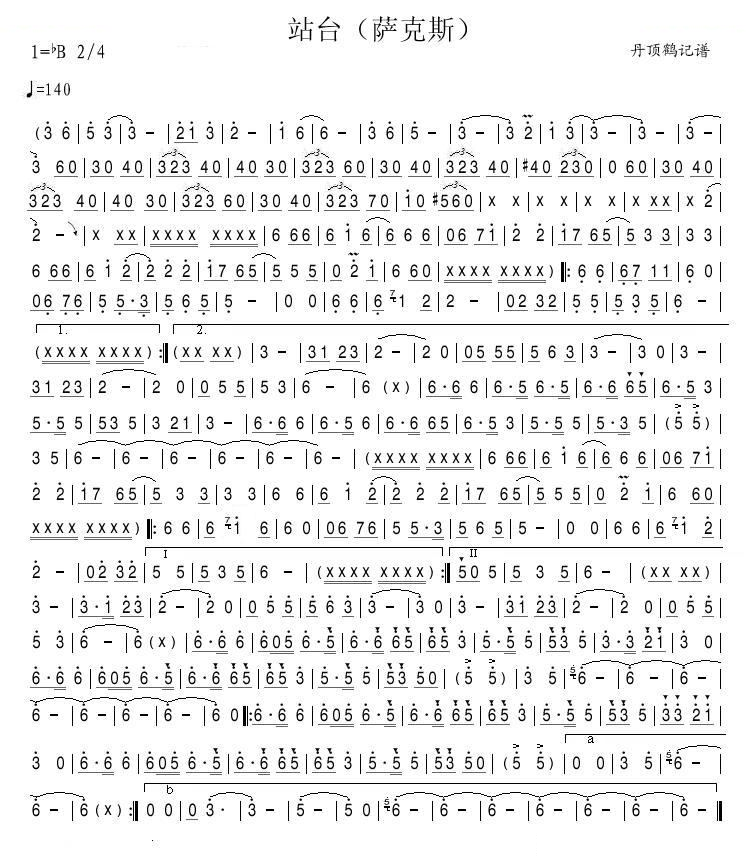 站台（萨克斯）
1=♭B 2/4
丹顶鹤记谱
♩=140
(3 6|5 3|3 -|21 3|2 -|1 6|6 -|3 6|5 -|3 -|3 2|1 3|3 -|3 -|3 -|
3 60|30 40|323 40|40 30|323 60|30 40|323 40|#40 230|0 60|30 40|
323 40|40 30|323 60|30 40|323 70|10 #560|x x|x x|x x|x xx|x 2|
2 -|x xx|xxxx xxxx|6 66|6 1 6|6 6 6|06 71|2 2|17 65|5 3 3|3 3|
6 66|6 1 2|2 2 2|17 65|5 5 5|0 2 1|6 60|xxxx xxxx):|6 6|67 11|6 0|
06 76|5 5·3|5 6 5|5 -|0 0|6 6|6 7 1 2|2 -|02 32|5 5|5 3 5|6 -|
1.
2.
(xxxx xxxx):|(xx xx)|3 -|31 23|2 -|2 0|05 55|5 6 3|3 -|3 0|3 -|
31 23|2 -|2 0|0 5 5|5 3|6 -|6 (x)|6·6 6|6·5 6·5|6·6 65|6·5 3|
5·5 5|53 5|3 21|3 -|6·6 6|6·5 6|6·6 65|6·5 3|5·5 5|5·3 5|(5 5)|
3 5|6 -|6 -|6 -|6 -|6 -|(xxxx xxxx|6 66|6 1 6|6 6 6|06 71|
2 2|17 65|5 3 3|3 3|6 6|6 1 2|2 2 2|17 65|5 5 5|0 2 1|6 60|
xxxx xxxx):|6 6|6 7 1 6|6 0|06 76|5 5·3|5 6 5|5 -|0 0|6 6|6 7 1 2|
I
II
2 -|02 32|5 5|5 3 5|6 -|(xxxx xxxx):|50 5|5 3 5|6 -|(xx xx)|
3 -|3·1 23|2 -|2 0|0 5 5|5 6 3|3 -|3 0|3 -|31 23|2 -|2 0|0 5 5|
5 3|6 -|6(x)|6·6 6|605 6·5|6·6 65|65 3|5·5 5|53 5|3·3 21|3 0|
6·6 6|605 6·5|6·6 65|65 3|5·5 5|53 50|(5 5)|3 5|6 -|6 -|6 -|
6 -|6 -|6 -|6 -|6 0:|6·6 6|605 6·5|6·6 65|65 3|5·5 5|53 5|33 21|
3 0|6·6 6|605 6·5|6·6 65|65 3|5·5 5|53 50|(5 5)|0 0|3 5|6 -|
a
b
6 -|6(x):|0 0|0 3·|3 -|5 -|5 -|6 -|6 -|6 -|6 -|6 -|6 -|